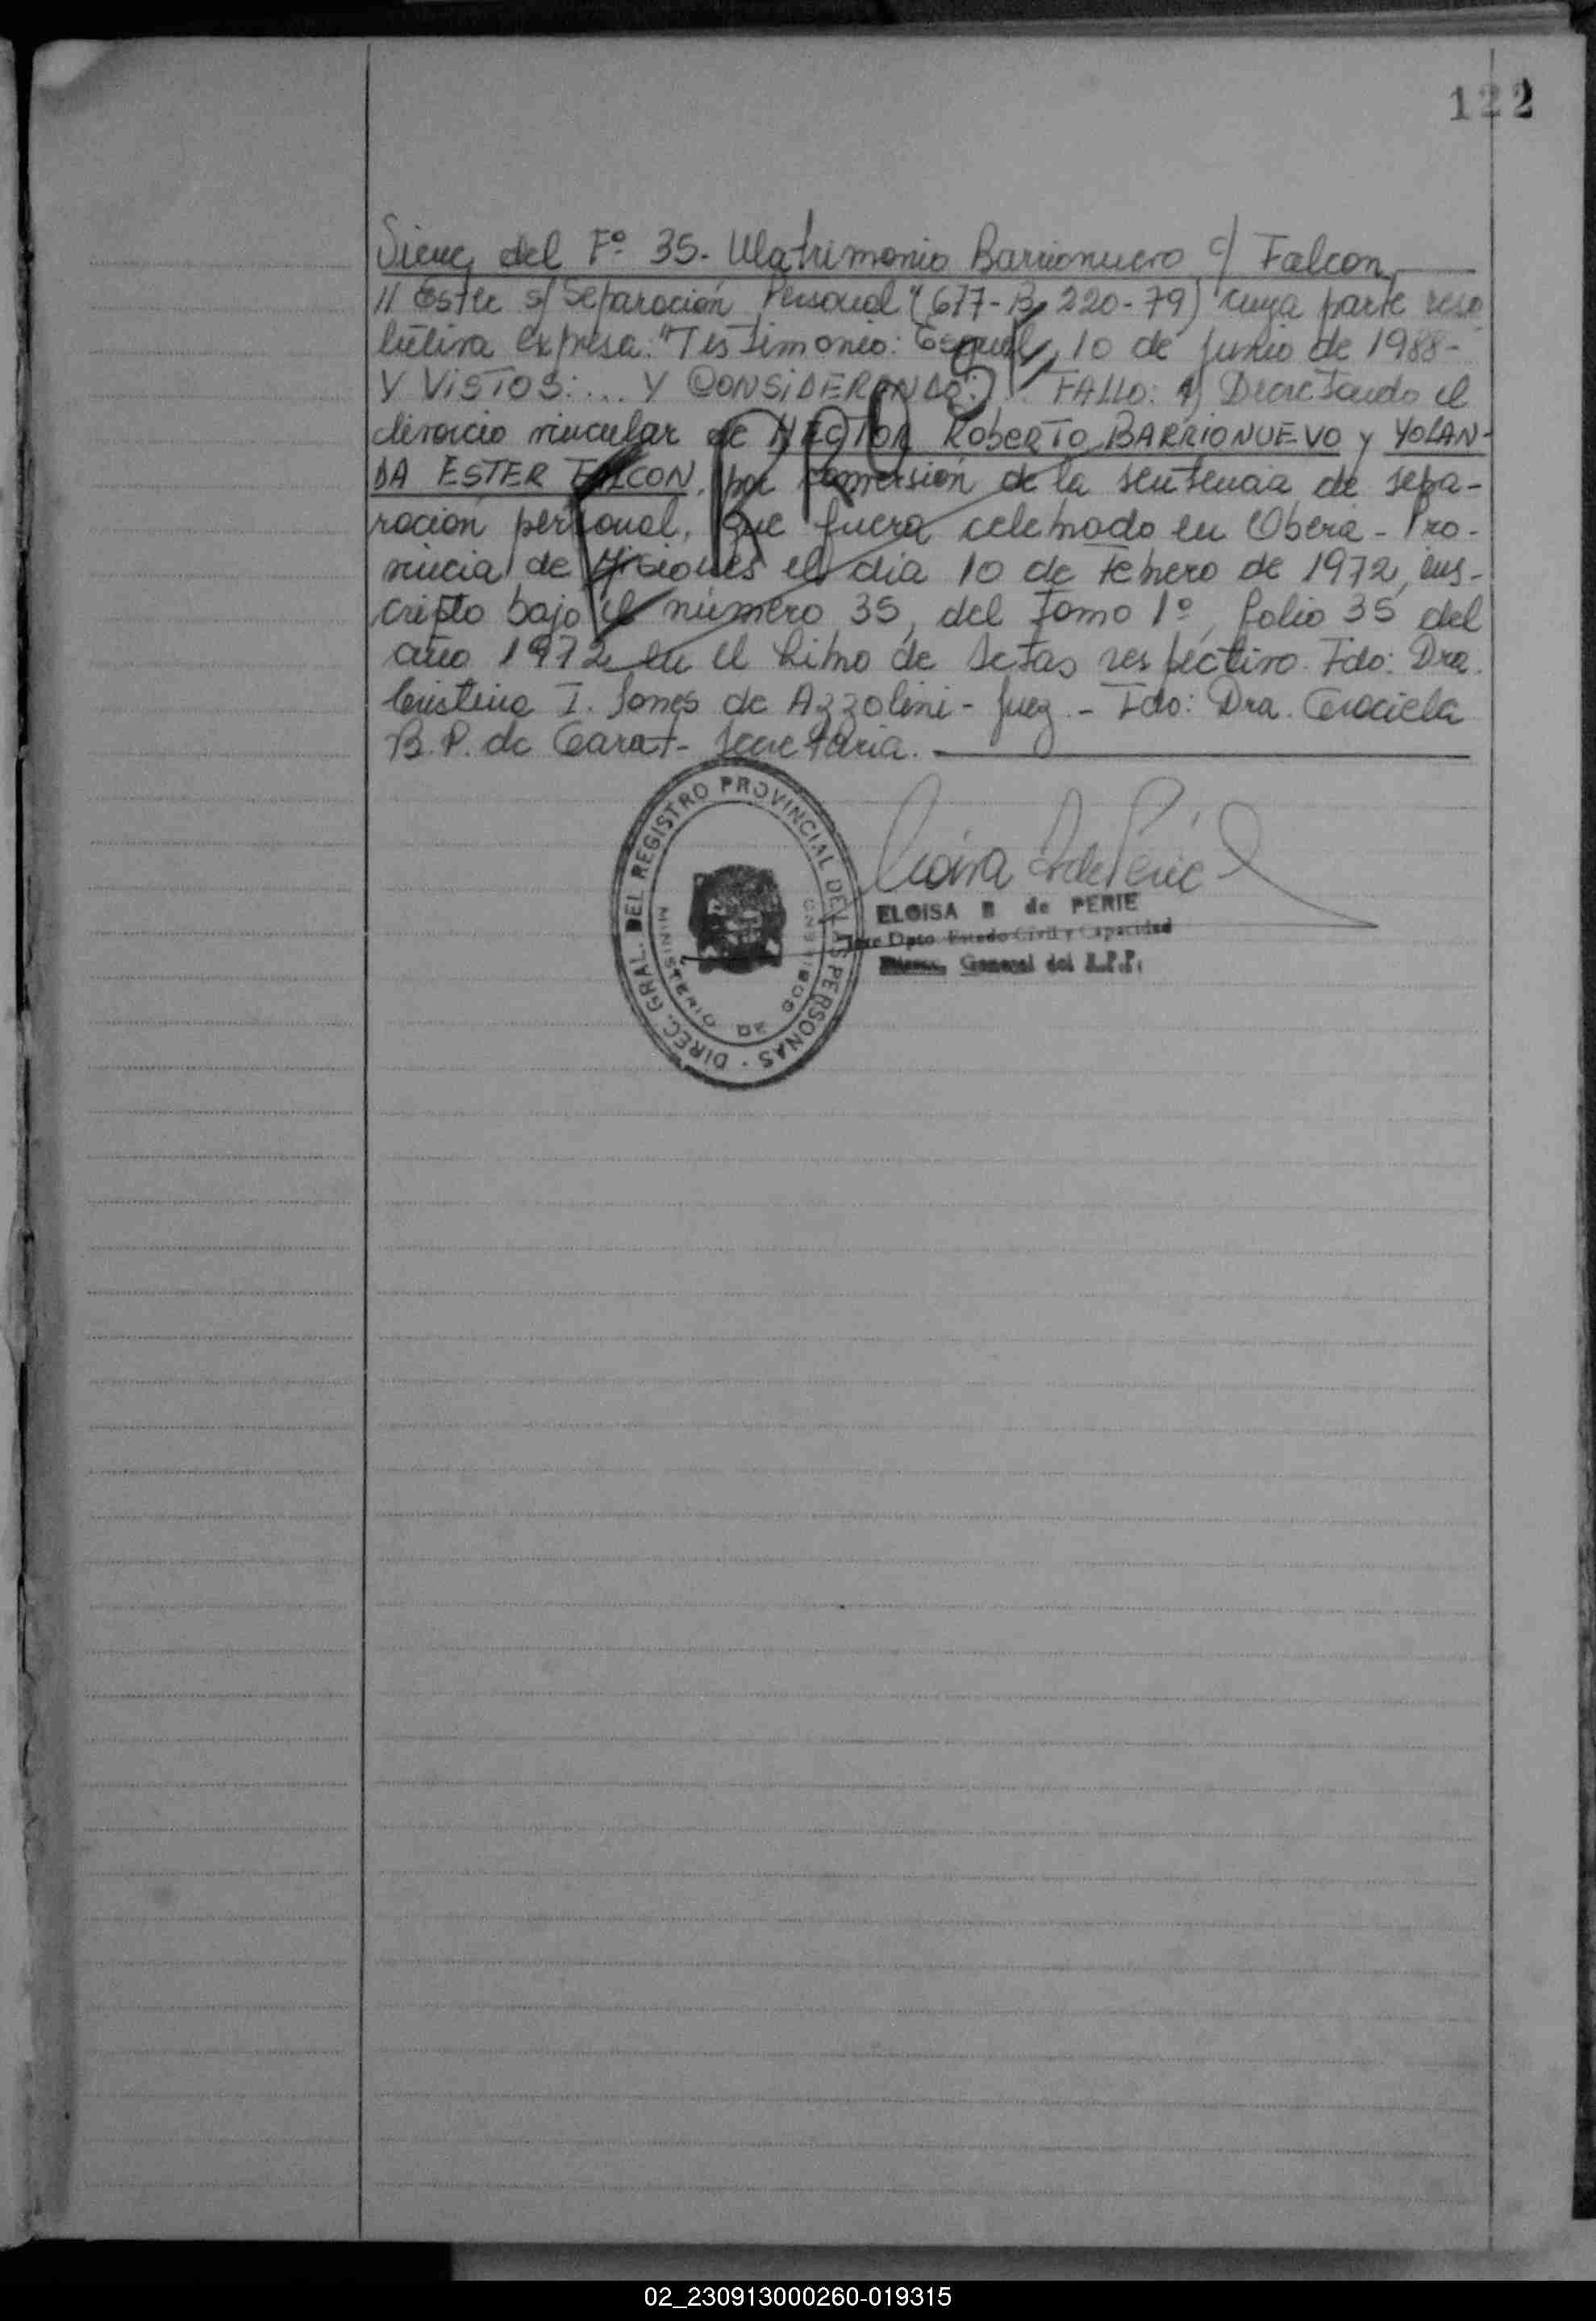 122
Viene del Fº 35. Matrimonio Barrionuevo c/ Falcon
// Ester s/ Separación Personal" (677-B, 220-79) cuya parte reso
lutiva expresa: "Testimonio: Esquel, 10 de junio de 1988-
Y VISTOS: ... Y CONSIDERANDO: ... FALLO: 1) Decretando el
divorcio vincular de HECTOR ROBERTO BARRIONUEVO y YOLAN-
DA ESTER FALCON, por conversión de la sentencia de sepa-
ración personal, que fuera celebrado en Oberá - Pro-
vincia de Misiones el día 10 de Febrero de 1972, ins-
cripto bajo el número 35, del Tomo 1º, folio 35 del
año 1972 en el Libro de Actas respectivo. Fdo: Dra.
Cristina I. Jones de Azzolini - Juez - Fdo: Dra. Graciela
B. P. de Garat - Secretaria.
DIREC. GRAL. DEL REGISTRO PROVINCIAL DE LAS PERSONAS
MINISTERIO DE GOBIERNO
ELOISA B de PERIE
Jefe Dpto. Estado Civil y Capacidad
General del R.P.P.
02_230913000260-019315